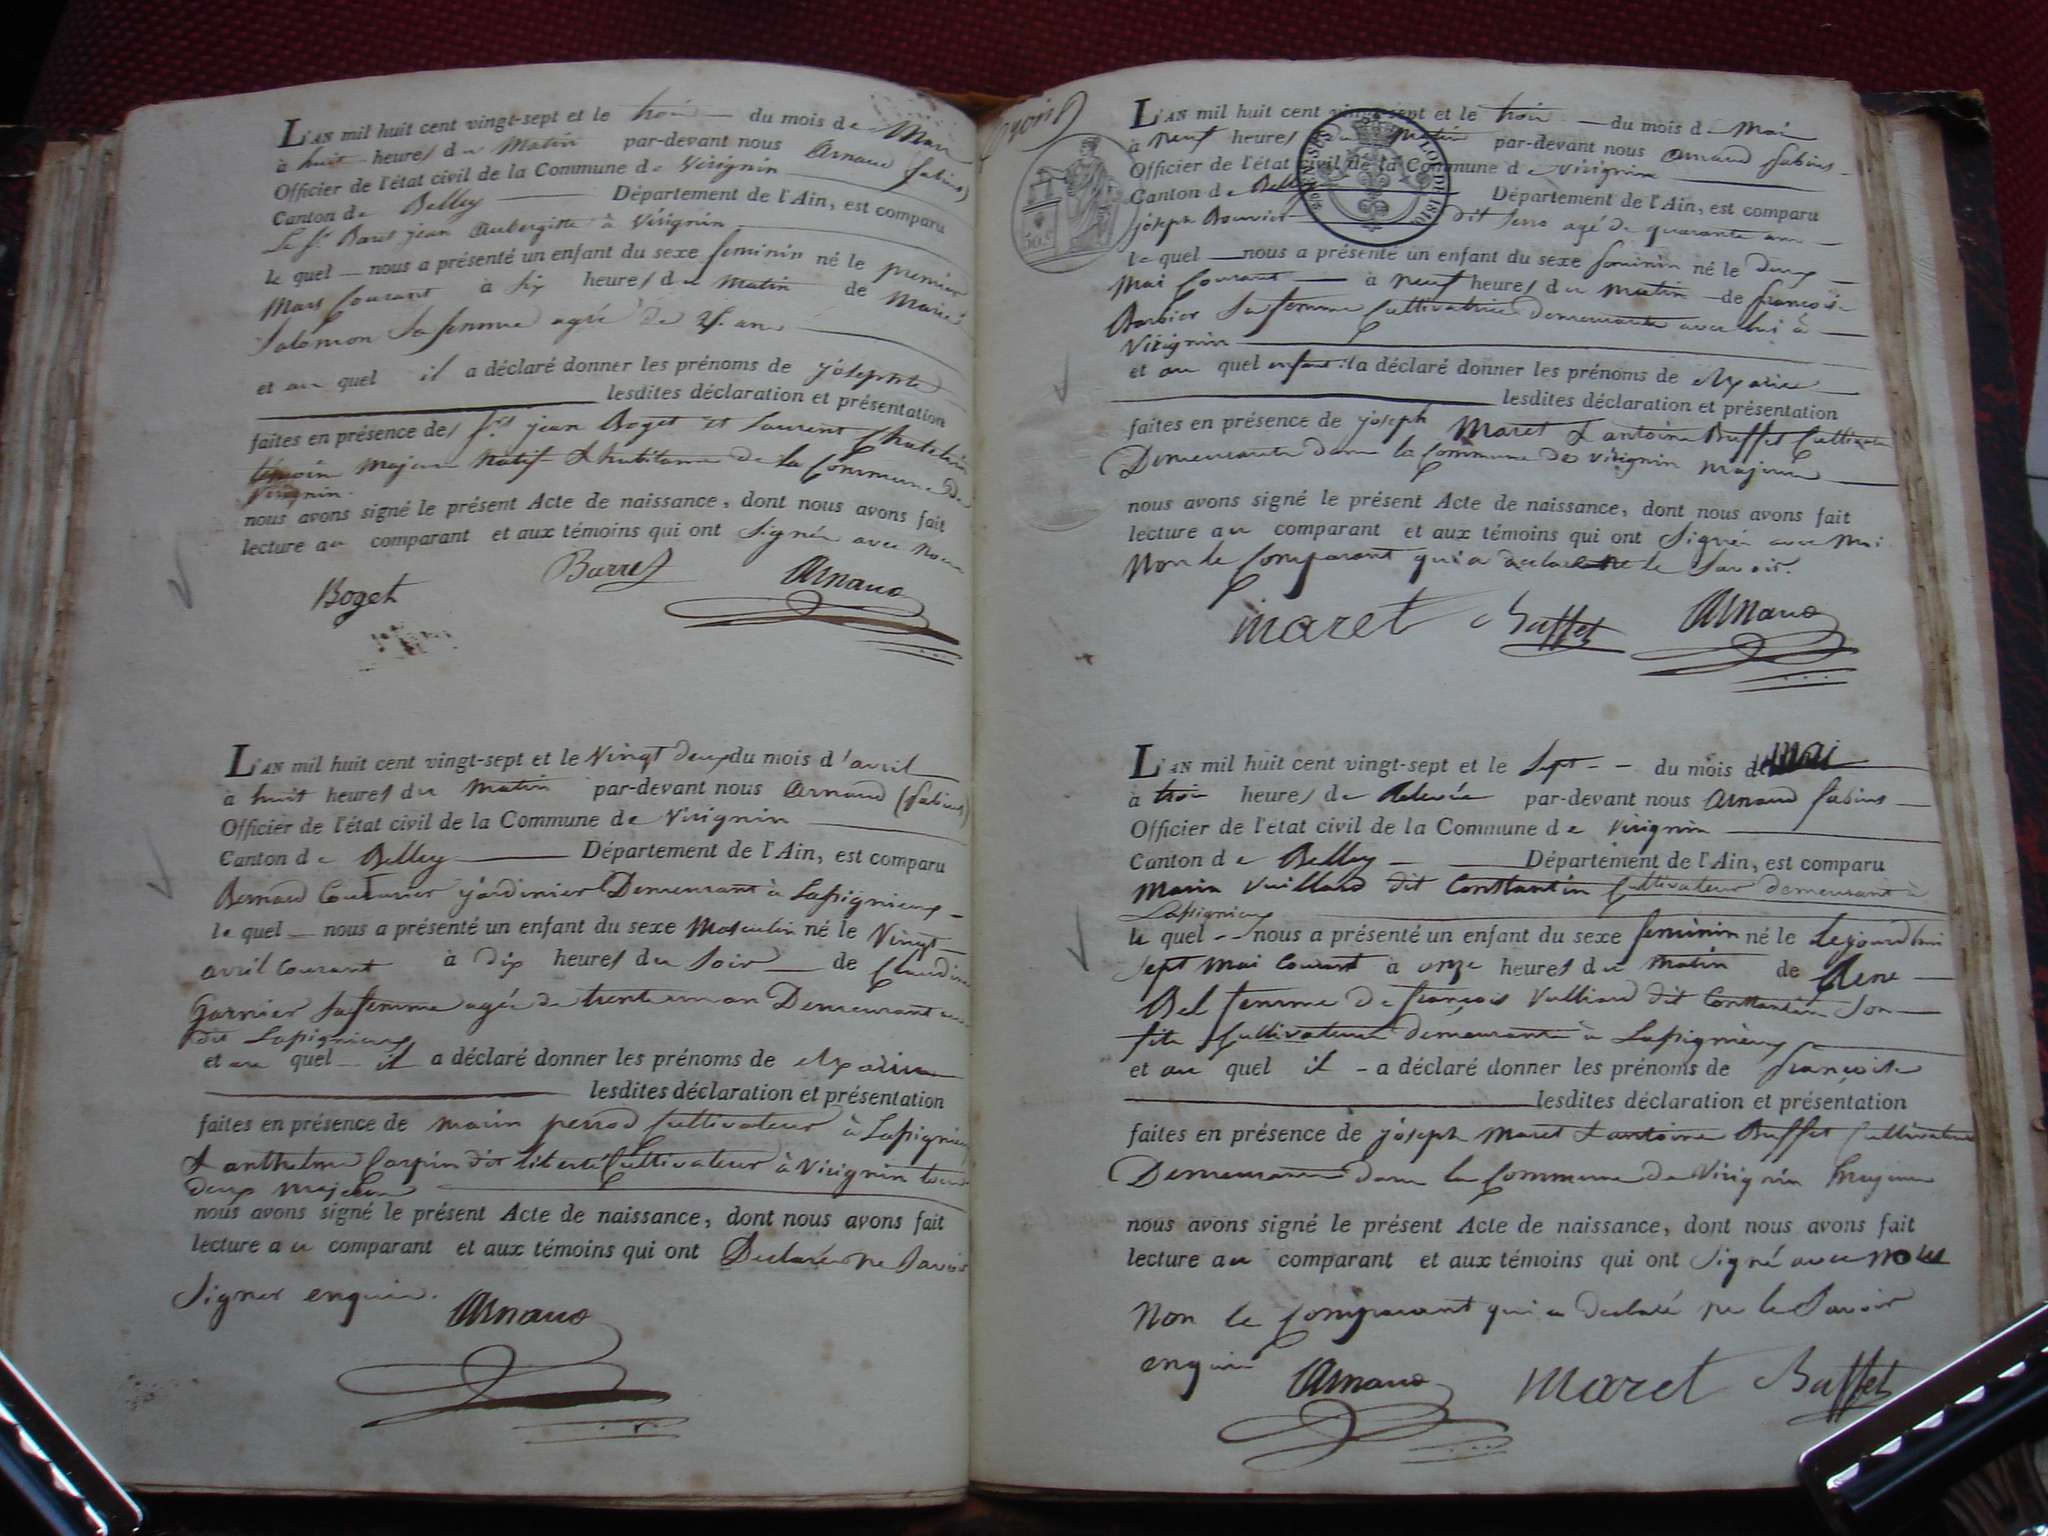 L'AN mil huit cent vingt-sept et le trois du mois de Mars
à huit heures du Matin par-devant nous Arnaud (fabius)
Officier de l'état civil de la Commune de Virignin
Canton de Belley Département de l'Ain, est comparu
Le Sr. Baret jean Aubergiste à Virignin
le quel nous a présenté un enfant du sexe feminin né le premier
Mars Courant à six heures du Matin de Marie
Salomon Sa femme agée de 25. ans
et au quel il a déclaré donner les prénoms de josephte
lesdites déclaration et présentation
faites en présence des Srs jean Boget et Laurent Chatelain
témoins Majeurs Natif & habitans de La Commune de
Virignin.
nous avons signé le présent Acte de naissance, dont nous avons fait
lecture au comparant et aux témoins qui ont Signés avec Nous
Boget Barret Arnaud
L'AN mil huit cent vingt-sept et le Vingt deux du mois d'avril
à huit heures du Matin par-devant nous Arnaud (fabius)
Officier de l'état civil de la Commune de Virignin
Canton de Belley Département de l'Ain, est comparu
Bernard Couturier jardinier Demeurant à Lassignieux
le quel nous a présenté un enfant du sexe Masculin né le Vingt
avril Courant à dix heures du Soir de Claudine
Garnier Sa femme agée de trente un an Demeurant au
dit Lassignieux
et au quel il a déclaré donner les prénoms de
lesdites déclaration et présentation
faites en présence de Marin perrod Cultivateur à Lassignieux
& anthelme Carpin dit liberté Cultivateur à Virignin tous
deux majeurs
nous avons signé le présent Acte de naissance, dont nous avons fait
lecture au comparant et aux témoins qui ont Declaré ne Savoir
Signer enquis.
Arnaud
50.c
L'AN mil huit cent vingt-sept et le trois du mois de Mai
à neuf heures du Matin par-devant nous Arnaud fabius
Officier de l'état civil de la Commune de Virignin
Canton de Belley Département de l'Ain, est comparu
joseph Bouvier dit serro agé de quarante ans
le quel nous a présenté un enfant du sexe feminin né le deux
Mai Courant à neuf heures du matin de françoise
Barbier Sa femme Cultivatrice demeurante avec lui à
Virignin
et au quel enfant il a déclaré donner les prénoms de
lesdites déclaration et présentation
faites en présence de joseph Maret & antoine Buffet Cultivateurs
Demeurants dans la Commune de Virignin Majeurs
nous avons signé le présent Acte de naissance, dont nous avons fait
lecture au comparant et aux témoins qui ont Signés avec Moi
Non le Comparant qui a declaré ne le Savoir.
Maret Buffet Arnaud
L'AN mil huit cent vingt-sept et le Sept du mois de Mai
à trois heures de Relevée par-devant nous Arnaud fabius
Officier de l'état civil de la Commune de Virignin
Canton de Belley Département de l'Ain, est comparu
Marin Vuilland dit Constantin Cultivateur demeurant à
Lassignieux
le quel nous a présenté un enfant du sexe feminin né le Lejourdhui
Sept Mai Courant à onze heures du Matin de
Bel femme de françois Vulliand dit Constantin Son
fils Cultivateur demeurante à Lassignieux
et au quel il a déclaré donner les prénoms de françoise
lesdites déclaration et présentation
faites en présence de joseph Maret & antoine Buffet Cultivateurs
Demeurants dans la Commune de Virignin Majeurs
nous avons signé le présent Acte de naissance, dont nous avons fait
lecture au comparant et aux témoins qui ont Signé avec Nous
Non le Comparant qui a declaré ne le Savoir
enquis Arnaud Maret Buffet